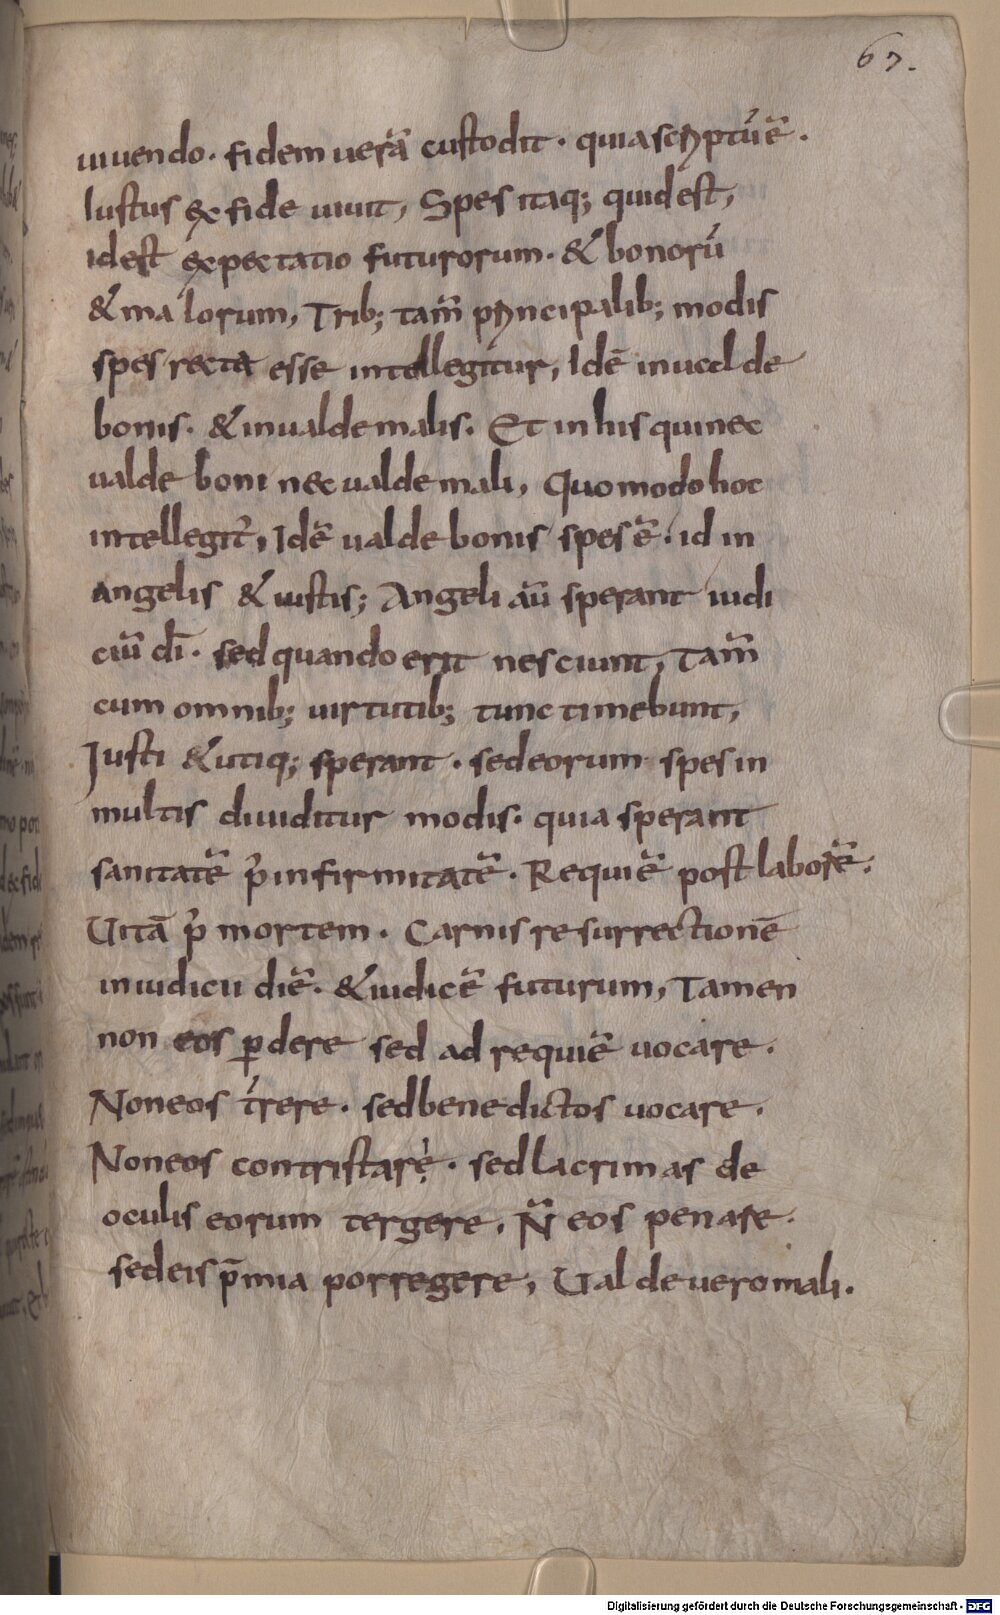 67.
uiuendo. fidem uerā custodit. quia scriptū ē.
Iustus ex fide uiuit, Spes itaq; quid est,
id est expectatio futurorum. & bonorū
& malorum, Trib; tam̄ principalib; modis
spes recta esse intellegitur, Idē in ualde
bonis. & in ualde malis. Et in his qui nec
ualde boni nec ualde mali, Quomodo hoc
intellegit̄, Idē ualde bonis spes ē. id in
angelis & iustis; Angeli aū sperant iudi
ciū dī. sed quando erit nesciunt, Tam̄
cum omnib; uirtutib; tunc timebunt,
Iusti & utiq; sperant. sed eorum spes in
multis diuiditur modis. quia sperant
sanitatē p̄ infirmitatē. Requiē post laborē.
Uitā p̄ mortem. Carnis resurrectionē
in iudicii diē. & iudicē futurum, Tamen
non eos ꝑdere sed ad requiē uocare.
Non eos t̄rere. sed benedictos uocare.
Non eos contristare. sed lacrimas de
oculis eorum tergere. N̄ eos penare.
sed eis p̄mia porregere, Ualde uero mali.
Digitalisierung gefördert durch die Deutsche Forschungsgemeinschaft - DFG